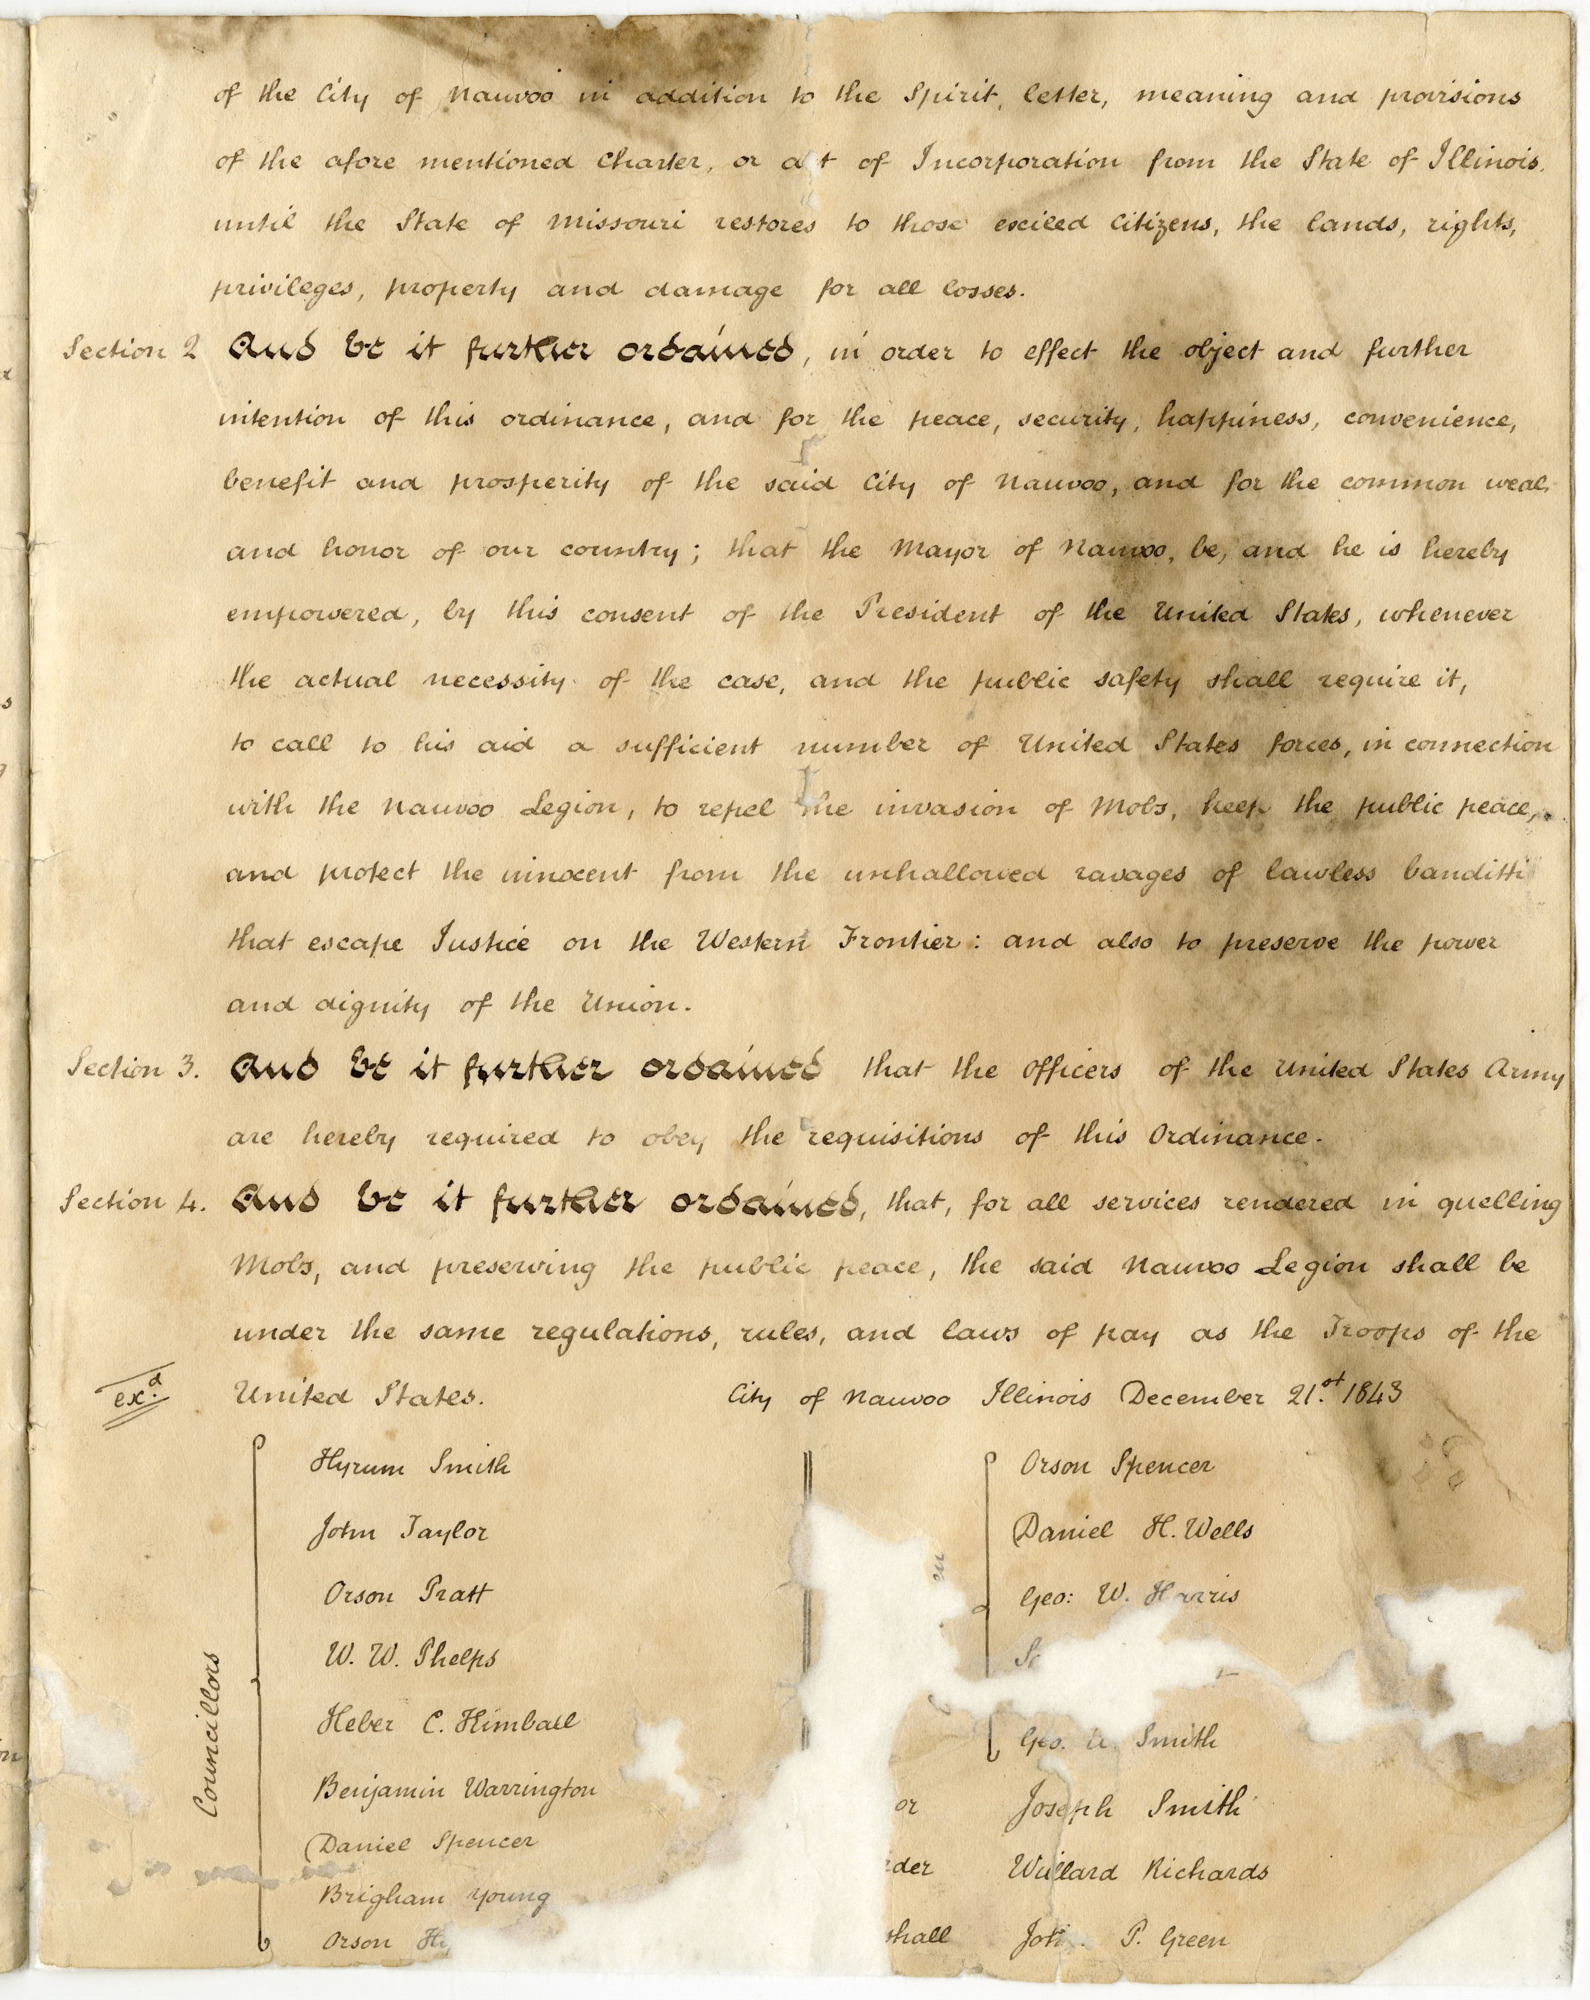 of the City of Nauvoo in addition to the Spirit, letter, meaning and provisions
of the afore mentioned Charter, or a t of Incorporation from the State of Illinois,
until the State of Missouri restores to those exciled Citizens, the lands, rights,
privileges, property and damage for all losses.
Section 2 And be it further ordained, in order to effect the object and further
intention of this ordinance, and for the peace, security, happiness, convenience,
benefit and prosperity of the said City of Nauvoo, and for the common weal,
and honor of our country; that the Mayor of Nauvoo, be, and he is hereby
empowered, by this consent of the President of the United States, whenever
the actual necessity of the case, and the public safety shall require it,
to call to his aid a sufficient number of United States forces, in connection
with the Nauvoo Legion, to repel the invasion of Mobs, keep the public peace,
and protect the innocent from the unhallowed ravages of lawless banditti
that escape Justice on the Western Frontier: and also to preserve the power
and dignity of the Union.
Section 3. And be it further ordained that the Officers of the United States Army
are hereby required to obey the requisitions of this Ordinance.
Section 4. And be it further ordained, that, for all services rendered in quelling
Mobs, and preserving the public peace, the said Nauvoo Legion shall be
under the same regulations, rules, and laws of pay as the Troops of the
ex.d United States. City of Nauvoo Illinois December 21.st 1843
Councillors
Hyrum Smith
John Taylor
Orson Pratt
W. W. Phelps
Heber C. Kimball
Benjamin Warrington
Daniel Spencer
Brigham Young
Orson Hy
en
Orson Spencer
Daniel H. Wells
Geo: W. Harris
Geo. A. Smith
or Joseph Smith
rder Willard Richards
shall Joh P. Green